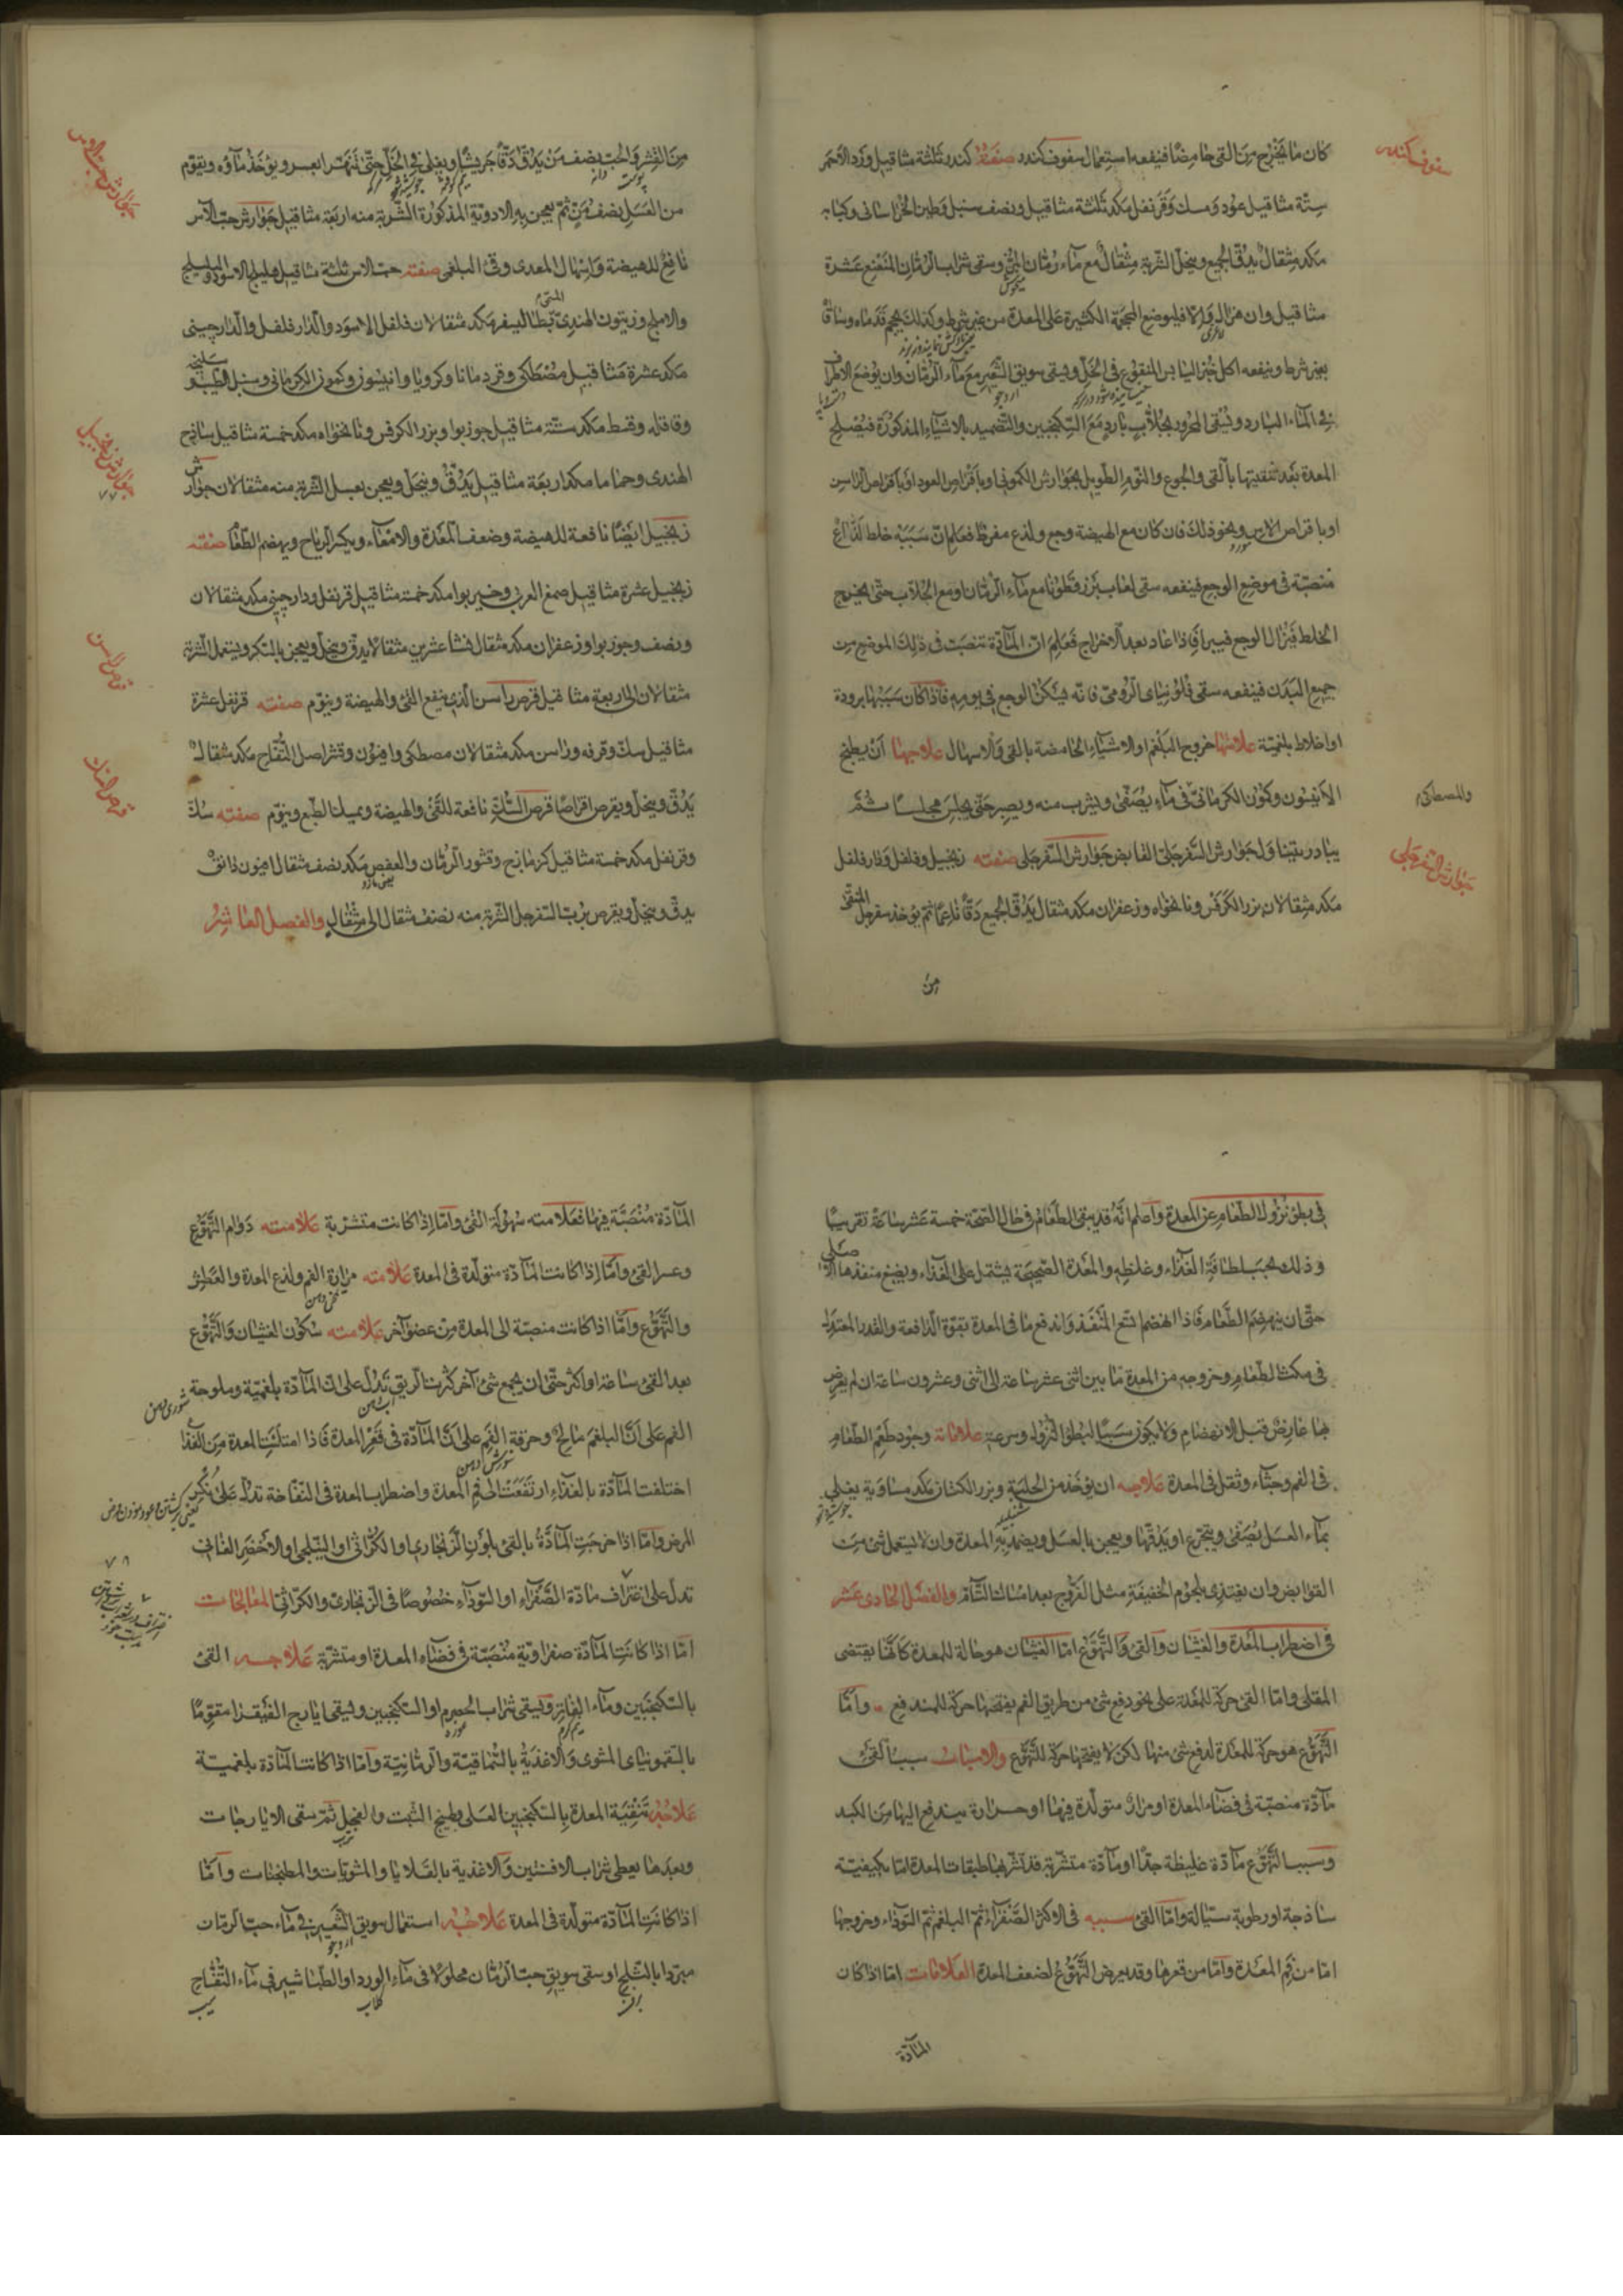 كان ما يخرج من القى حامضا فينفعه استعمال سفوف كندر صفته كندر ثلثة مثاقيل ورد الاحمر
ستة مثاقيل عود ومسك وقرنفل مكد ثلثة مثاقيل ونصف سنبل وطين الخراسانى وكبابه
مكد مثقال يدق الجميع وينخل الشربة مثقال مع ماء رمان المز وسقى شراب الرمان المنعنع عشرة
مثاقيل وان هزال والا فليوضع المحجمة الكثيرة على المعدة من غير شرط وكذلك يحجم قدماه وساقاه
بغير شرط وينفعه اكل خبز اليابس المنقوع فى الخل ويسقى سويق الشعير مع ماء الرمان وان يوضع الاطراف
فى الماء البارد وليسقى المحرور بجلاب بارد مع السكنجبين والتضميد بالاشياء المذكورة فيصلح
المعدة بعد تنقيتها بالقى والجوع والنوم الطويل بجوارش الكمونى او باقراص العود او باقراص الراسن
او باقراص الاس ونحو ذلك فان كان مع الهيضة وجع ولذع مفرط فعلم ان سببه خلط لذاع
منصبة فى موضع الوجع فينفعه سقى لعاب بزر قطونا مع ماء الرمان او مع الجلاب حتى يخرج
الخلط فيزال الوجع فيبرأ فاذا عاد بعد الاخراج فعلم ان المادة تنصبت فى ذلك الموضع من
جميع البدن فينفعه سقى فلونياى الرومى فانه يسكن الوجع فى يومه فاذا كان سببها برودة
او اخلاط بلغمية علامتها خروج البلغم او الاشياء الحامضة بالقى والاسهال علاجها ان يطبخ
الانيسون وكمون الكرمانى فى ماء يصفى ويشرب منه ويصبر حتى يجلس مجلسا ثم
يبادر بقينا ولجوارش السفرجلى القابض جوارش السفرجلى صفته زنجبيل وفلفل ودارفلفل
مكد مثقالان بزر الكرفس ونانخواه وزعفران مكد مثقال يدق الجميع دقا ناعما ثم يؤخذ سفرجل المنقى
من
سفوف كندر
والمصطكى
جوارش السفرجلى
من القشر والحب نصف من يدق دقا جريشا ويغلى فى الخل حتى تهترا بعسر ويؤخذ ماؤه ويقوم
من العسل نصف من ثم يعجن به الادوية المذكورة الشربة منه اربعة مثاقيل جوارش حب الاس
نافع للهيضة واسهال المعدى وقى البلغمى صفته حب الاس ثلثة مثاقيل هليلج الاسود والبليلج
والاملج وزيتون الهندى مكد مثقالان فلفل الاسود والدارفلفل والدارچينى
مكد عشرة مثاقيل مصطكى وقردمانا وكرويا وانيسون وكمون الكرمانى وسنبل الطيب
وقاقله وقسط مكد ستة مثاقيل جوزبوا وبزر الكرفس ونانخواه مكد خمسة مثاقيل ساذج
الهندى وحماما مكد اربعة مثاقيل يدق وينخل ويعجن بعسل الشربة منه مثقالان جوارش
زنجبيل ايضا نافعة للهيضة وضعف المعدة والامعاء ويكسر الرياح ويهضم الطعام صفته
زنجبيل عشرة مثاقيل صمغ العربى وخيربوا مكد خمسة مثاقيل قرنفل ودارچينى مكد مثقالان
ونصف وجوزبوا وزعفران مكد مثقال نشا عشرين مثقالا يدق وينخل ويعجن بالسكر ويستعمل الشربة
مثقالان الى اربعة مثاقيل قرص راسن الذى ينفع القى والهيضة وينوم صفته قرنفل عشرة
مثاقيل سك وقرفه وراسن مكد مثقالان مصطكى وافيون وقشر اصل التفاح مكد مثقال
يدق وينخل ويقرص اقراصا قرص السك نافعة للقى والهيضة ويمسك الطبع وينوم صفته سك
وقرنفل مكد خمسة مثاقيل كزمازج وقشور الرمان والعفص مكد نصف مثقال افيون دانق
يدق وينخل ويقرص برب السفرجل الشربة منه نصف مثقال الى مثقال والفصل العاشر
جوارش حب الاس
جوارش زنجبيل
٧٧
قرص راسن
قرص السك
فى بطؤ نزول الطعام عن المعدة واعلم انه قد يبقى الطعام فى حال الصحة خمسة عشر ساعة تقريبا
وذلك بحسب لطافة الغذاء وغلظه والمعدة الصحيحة يشتمل على الغذاء ويضيق منفذها
حتى ان ينهضم الطعام فاذا انهضم اتسع المنفذ واندفع ما فى المعدة بقوة الدافعة والقدر المعتدل
فى مكث الطعام وخروجه من المعدة ما بين اثنى عشر ساعة الى اثنى وعشرون ساعة ان لم يعرض
هنا عارض قبل الانهضام ولا يكون سببا لبطؤ النزول وسرعته علاماته وجود طعم الطعام
فى الفم وجشاء وثقل فى المعدة علاجه ان يؤخذ من الحلبة وبزر الكتان مكد مساوية يغلى
بماء العسل يصفى ويتجرع او يدقها ويعجن بالعسل ويضمد به المعدة وان لا يستعمل شئ من
القوابض وان يغتذى بلحوم الخفيفة مثل الفروج بعد امساك التام والفصل الحادى عشر
فى اضطراب المعدة والغشيان والقى والتهوع اما الغشيان هو حالة للمعدة كانها يقتضى
المقلى واما القى حركة للمعدة على نحو دفع شئ من طريق الفم يقتضيها حركة للمندفع واما
التهوع هو حركة للمعدة لدفع شئ منها لكن لا يصحبها حركة للتهوع والاسباب سبب القى
مادة منصبة فى فضاء المعدة او مرار متولدة فيها او حرارة يندفع اليها من الكبد
وسبب التهوع مادة غليظة جدا او مادة متشربة قد تشربها طبقات المعدة اما بكيفية
ساذجة او رطوبة سيالة واما القى سببه فى الاكثر الصفراء ثم البلغم ثم السوداء وخروجها
اما من فم المعدة واما من قعرها وقد يعرض التهوع لضعف المعدة العلامات اما اذا كان
المادة
المادة منصبة فيها فعلامته سهولة القى واما اذا كانت متشربة علامته دوام التهوع
وعسر القى واما اذا كانت المادة متولدة فى المعدة علامته مرارة الفم ولذع المعدة والعطش
والتهوع واما اذا كانت منصبة الى المعدة من عضو آخر علامته سكون الغشيان والتهوع
بعد القى ساعة او اكثر حتى ان يجمع شئ آخر كثرت الريق تدل على ان المادة بلغمية وملوحة
الفم على ان البلغم مالح وحرقة الفم على ان المادة فى قعر المعدة فاذا امتلئت المعدة من الغذا
اختلفت المادة بالغذاء ارتفعت الى فم المعدة واضطراب المعدة فى النفاخة تدل على نكس
المرض واما اذا خرجت المادة بالقى بلون الزنجارى او الكراثى او النيلجى او الاخضر القانى
تدل على اعتراف مادة الصفراء او السوداء خصوصا فى الزنجارى والكراثى المعالجات
اما اذا كانت المادة صفراوية منصبة فى فضاء المعدة او متشربة علاجه القى
بالسكنجبين وماء الفاتر ويسقى شراب الحصرم او السكنجبين وليسقى ايارج الفيقرا مقوما
بالسقمونياى المشوى والاغذية بالسماقية والرمانية واما اذا كانت المادة بلغمية
علاجه تنقية المعدة بالسكنجبين العسلى وطبيخ الشبت والفجل ثم سقى الايارجات
وبعدها يعطى شراب الافسنتين والاغذية بالقلايا والمشويات والمطجنات واما
اذا كانت المادة متولدة فى المعدة علاجه استعمال سويق الشعير فى ماء حب الرمان
مبردا بالثلج او سقى سويق حب الرمان محلولا فى ماء الورد او الطباشير فى ماء التفاح
٧٨